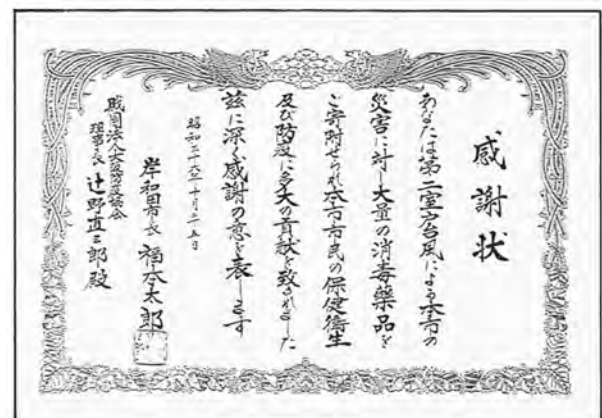 感謝状
あなたは第二室戸台風による本市の
災害に対し大量の消毒薬品を
ご寄附せられ本市市民の保健衛生
及び防疫に多大の貢献を致されました
茲に深く感謝の意を表します
昭和三十六年十月二十五日
岸和田市長 福本太郎
財団法人大阪防疫協会
理事長 辻野直三郎殿